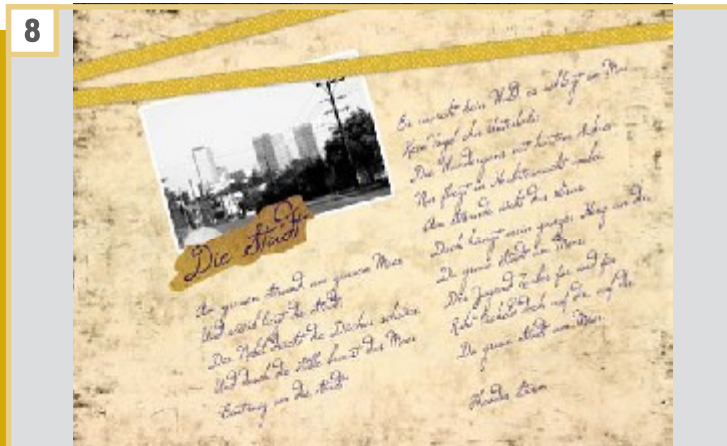 8
Die Stadt
Am grauen Strand am grauen Meer
Und seitab liegt die Stadt
Der Nebel drückt die Dächer schwer
Und durch die Stille braust das Meer
Eintönig um die Stadt
Es rauscht kein Wald es schlägt im Mai
Kein Vogel ohn
Die Wandergans mit hartem Schrei
Nur fliegt in Herbstesnacht vorbei
Am Strande weht das Gras
Doch hängt mein ganzes Herz an dir
Du graue Stadt am Meer
Der Jugend Zauber für und für
Ruht lächelnd doch auf dir auf dir
Du graue Stadt am Meer
Storm